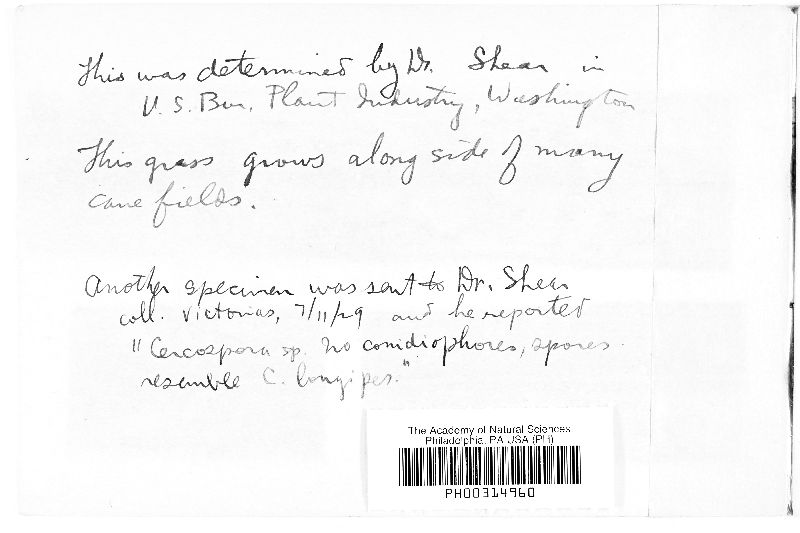 This was determined by Dr. Shear in
U. S. Bur. Plant Industry, Washington
This grass grows along side of many
cane fields.
Another specimen was sent to Dr. Shear
coll. Victorias, 7/11/29 and he reported
"Cercospora sp. No conidiophores, spores
resemble C. longipes."
The Academy of Natural Sciences
Philadelphia, PA USA (PH)
PH00314960